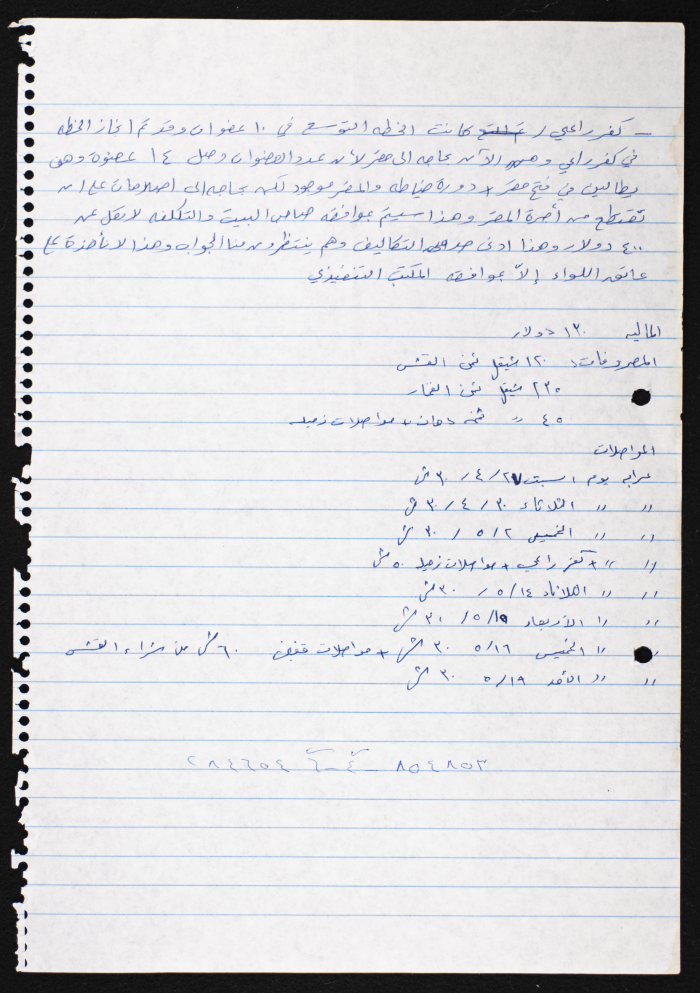 - كفر راعي / كانت الخطه التوسع في ١٠ عضوات وقد تم انجاز الخطه
في كفر راعي وهن الآن بحاجه الى مقر لأن عدد العضوات وصل ١٤ عضوة وهن
يطالبن في فتح مقر + دورة خياطه والمقر موجود لكن بحاجه الى اصلاحات على ان
تقتطع من أجرة المقر وهذا سيتم بموافقه صاحب البيت والتكلفه لا تقل عن
٤٠٠ دولار وهذا ادنى حد التكاليف وهم ينتظرون منا الجواب وهذا لا نأخذة على
عاتق اللواء إلاّ بموافقه المكتب التنفيذي
الماليه ١٣٠ دولار
المصروفات: ١٢٠ شيقل ثمن القش
٢٣٥ شيقل ثمن
٤٥ " ثمن دهان + مواصلات
المواصلات
عرابه يوم السبت ٤/٢٧ / ٣٠ ش
" " الثلاثاء ٤/٣٠ / ٣٠ ش
" " الخميس ٥/٢ / ٣٠ ش
" " + كفر راعي + مواصلات ٥٠ ش
" " الثلاثاء ٥/١٤ / ٣٠ ش
" " الأربعاء ٥/١٥ / ٣٠ ش
" " الخميس ٥/١٦ ٣٠ ش + مواصلات ٦٠ ش من شراء القش
" " الأحد ٥/١٩ ٣٠ ش
٨٥٤٨٥٣ ٢٨٤٦٥٤